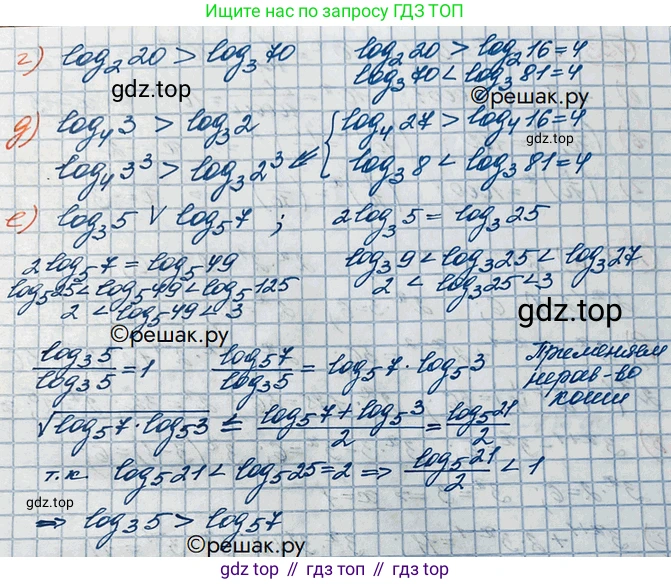 Ищите нас по запросу ГДЗ ТОП
г) log₂20 > log₃70   log₂20 > log₂16 = 4
log₃70 < log₃81 = 4
gdz.top
©решак.ру
д) log₄3 > log₃2   log₄27 > log₄16 = 4
log₄3³ > log₃2³ ⇐ { log₃8 < log₃81 = 4
е) log₃5 ∨ log₅7 ;   2log₃5 = log₃25
2log₅7 = log₅49   log₃9 < log₃25 < log₃27
log₅25 < log₅49 < log₅125   2 < log₃25 < 3
2 < log₅49 < 3   gdz.top
©решак.ру
log₃5 / log₃5 = 1   log₅7 / log₃5 = log₅7 · log₅3   Применяем нерав-во коши
√(log₅7 · log₅3) ≤ (log₅7 + log₅3)/2 = log₅21/2
т.к log₅21 < log₅25 = 2 ⇒ log₅21/2 < 1
⇒ log₃5 > log₅7
©решак.ру
gdz.top // гдз.топ // гдз.top